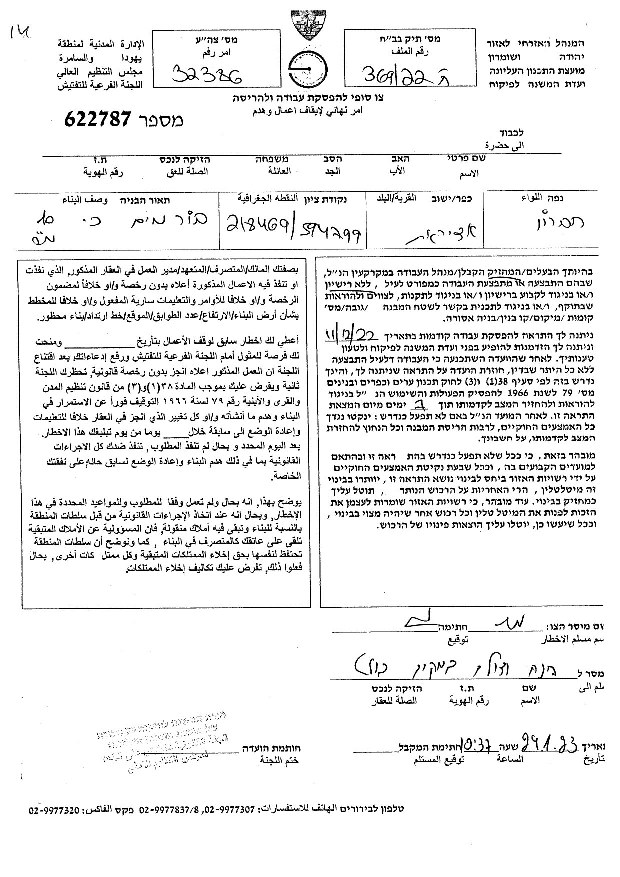 14
המנהל האזרחי לאזור
יהודה ושומרון
מועצת התכנון העליונה
ועדת המשנה לפיקוח
מס׳ תיק בב״ח
رقم الملف
369/22 ח
מס׳ צה״ע
امر رقم
32386
الإدارة المدنية لمنطقة
يهودا والسامرة
مجلس التنظيم العالي
اللجنة الفرعية للتفتيش
צו סופי להפסקת עבודה ולהריסה
امر نهائي لإيقاف اعمال وهدم
מספר 622787
לכבוד
الى حضرة
שם פרטי האב הסב משפחה הזיקה לנכס ת.ז
الاسم الأب الجد العائلة الصلة للعق رقم الهوية
נפה اللواء כפר/ישוב القرية/البلد נקודת ציון النقطه الجغرافية תאור הבניה وصف البناء
חברון 218469/594799 בור מים
בהיותך הבעלים/המחזיק הקבלן/מנהל העבודה במקרקעין הנ״ל,
שבהם התבצעה או מתבצעת העבודה כמפורט לעיל, ללא רישיון
ו/או בניגוד לקבוע ברישיון ו/או בניגוד לתקנות, לצווים ולהוראות
שבתוקף, ו/או בניגוד לתכנית בקשר לשטח המבנה /גובה/מס׳
קומות /מיקום/קו בנין/בניה אסורה.
ניתנה לך התראה להפסקת עבודה קודמות בתאריך 11/12/22
וניתנה לך הזדמנות להופיע בפני ועדת המשנה לפיקוח ולטעון
טענותיך. לאחר שהוועדה השתכנעה כי העבודה דלעיל התבצעה
ללא כל היתר שבדין, חוזרת הועדה על התראה שניתנה לך, והינך
נדרש בזה לפי סעיף 38(1) ו(3) לחוק תכנון ערים וכפרים ובנינים
מס׳ 79 לשנת 1966 להפסיק הפעולות והשימוש הנ״ל בניגוד
להוראות ולהחזיר המצב לקדמותו תוך 7 ימים מיום המצאת
התראה זו. לאחר המועד הנ״ל באם לא תפעל כנדרש : ינקטו נגדך
כל האמצעים החוקיים, לרבות הריסת המבנה וכל הנחוץ להחזרת
המצב לקדמותו, על חשבונך.
מובהר בזאת, כי ככל שלא תפעל כנדרש בהתראה זו ובהתאם
למועדים הקבועים בה, וככל שבעת נקיטת האמצעים החוקיים
על ידי רשויות האזור ביחס לבינוי נושא התראה זו, יוותרו בבינוי
זה מיטלטלין, הרי האחריות על הרכוש הנותר, תוטל עליך
כמחזיק בבינוי. עוד מובהר, כי רשויות האזור שומרות לעצמן את
הזכות לפנות את המיטלטלין וכל רכוש אחר שיהיה מצוי בבינוי,
וככל שיעשו כן, יוטלו עליך הוצאות פינויו של הרכוש.
بصفتك المالك/المتصرف/المتعهد/مدير العمل في العقار المذكور، الذي نفذت
او تنفذ فيه الاعمال المذكورة أعلاه بدون رخصة و/او خلافاً لمضمون
الرخصة و/او خلافا للأوامر والتعليمات سارية المفعول و/او خلافا للمخطط
بشأن أرض البناء/الارتفاع/عدد الطوابق/الموقع/خط ارتداد/بناء محظور.
أعطي لك اخطار سابق لوقف الأعمال بتأريخ ومنحت
لك فرصة للمثول أمام اللجنة الفرعية للتفتيش ورفع إدعاءاتك. بعد اقتناع
اللجنة ان العمل المذكور اعلاه انجز بدون رخصة قانونية، تحظرك اللجنة
ثانية ويفرض عليك بموجب المادة ٣٨(١)و(٣) من قانون تنظيم المدن
والقرى والأبنية رقم ٧٩ لسنة ١٩٦٦ التوقيف فوراً عن الاستمرار في
البناء وهدم ما أنشأته و/او كل تغيير الذي انجز في العقار خلافا للتعليمات
وإعادة الوضع الى سابقة خلال يوما من يوم تبليغك هذا الاخطار.
بعد اليوم المحدد و بحال لم تنفذ المطلوب، تنفذ ضدك كل الاجراءات
القانونية بما في ذلك هدم البناء وإعادة الوضع لسابق حاله على نفقتك
الخاصة.
يوضح بهذا، انه بحال ولم تعمل وفقا للمطلوب وللمواعيد المحددة في هذا
الإخطار، وبحال انه عند اتخاذ الإجراءات القانونية من قبل سلطات المنطقة
بالنسبة للبناء وتبقى فيه أملاك منقولة، فان المسؤولية عن الأملاك المتبقية
تلقى على عاتقك كالمتصرف في البناء , كما ونوضح أن سلطات المنطقة
تحتفظ لنفسها بحق إخلاء الممتلكات المتبقية وكل ممتلكات أخرى، بحال
فعلوا ذلك، تفرض عليك تكاليف إخلاء الممتلكات.
שם מוסר הצו: חתימה
اسم مسلم الاخطار توقيع
נמסר ל
سلم الى
שם ת.ז הזיקה לנכס
الاسم رقم الهوية الصلة للعقار
תאריך 24.1.23 שעה 10:37 חתימת המקבל
تأريخ الساعة توقيع المستلم
חותמת הועדה
ختم اللجنة
טלפון לבירורים الهاتف للاستفسارات: 02-9977307, 02-9977837/8 פקס الفاكس: 02-9977320